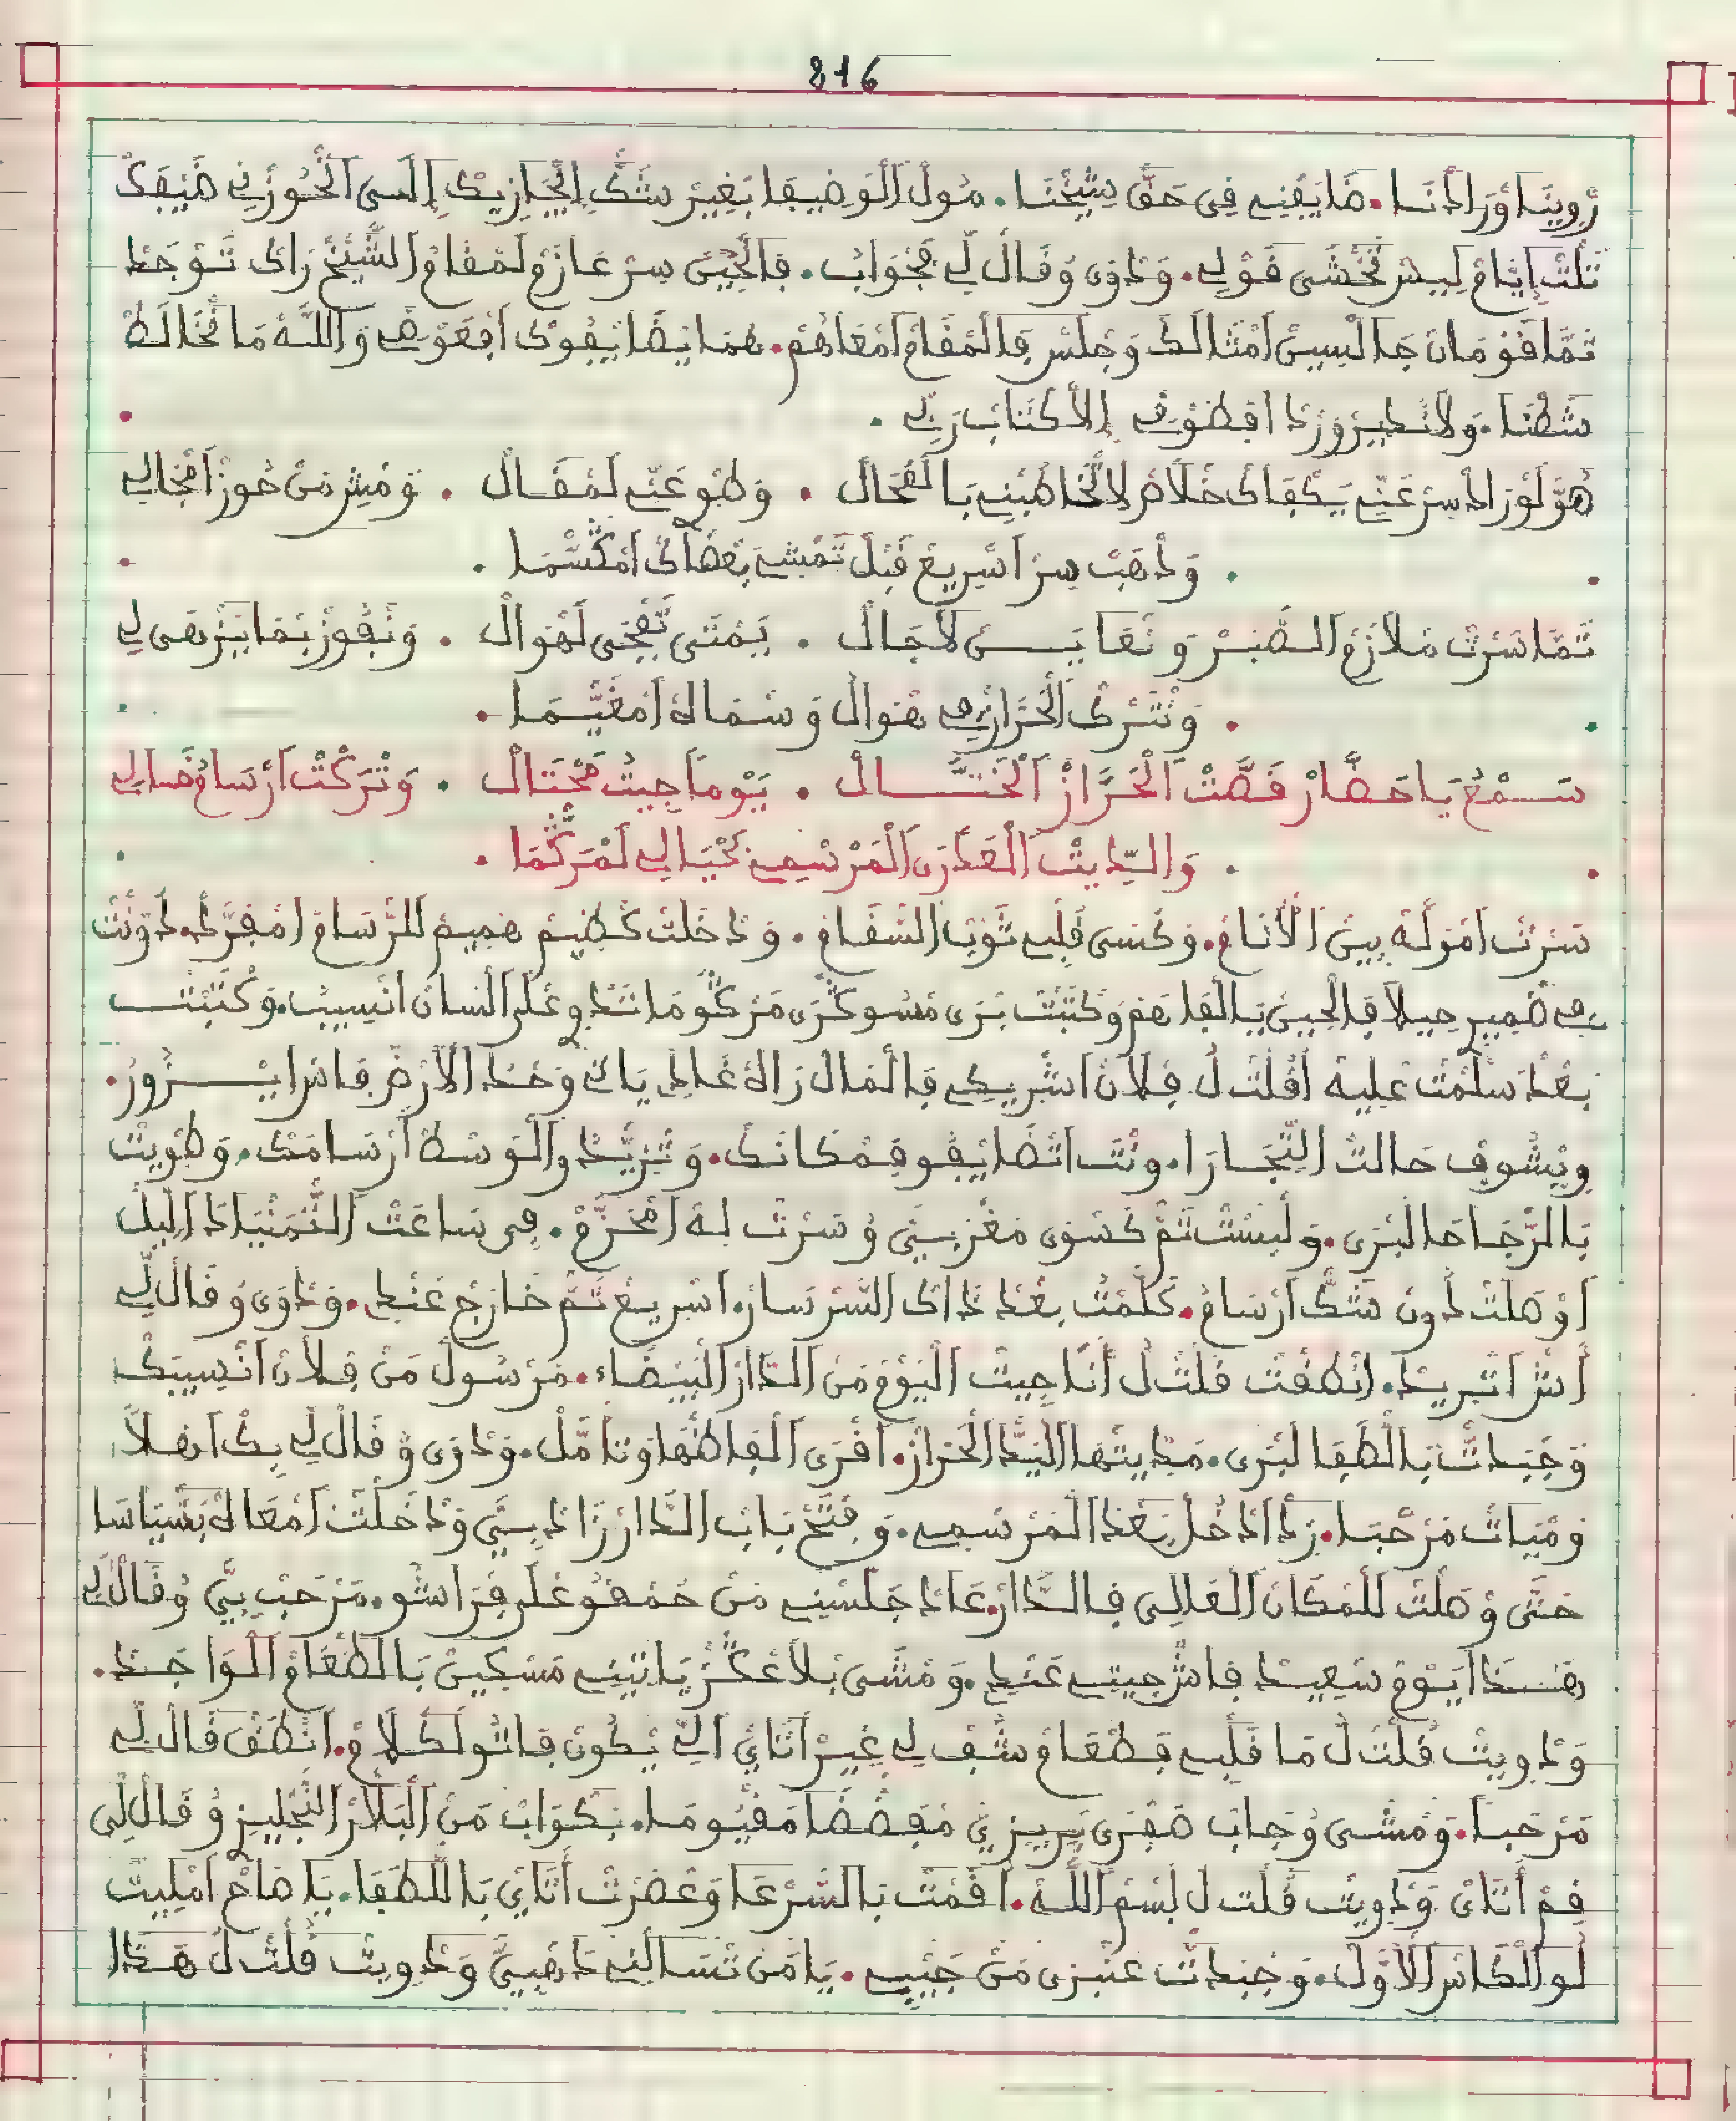 816
زوينا وراذنا. ما يفنع في حق شيخنا. مول الوضيفا بغير شك إيجازيك إلسى الحوزني ضيفك
ثلث إيام ليس تخشى قولي. وذوى وقال لي فجواب. فالحين سر عازم لمقام الشيخ راك توجد
تما قومان جالسين امثالك وجلس فالمقام امعاهم. والله ما تخالط
شطنا. ولا تدير وزدا إلا كتاب ربي.
هو لوراد سر عني يكفاك خلاص لا تخاطبني بالفحال . وطو عني لمقال . ومش من حوز امحالي
. وذهب سر اسريع قبل تمشي بعصاك امكشما .
تما سرت ملازم الصبر ونعاين لاجال . يمتى تفجى لهوال . ونفوز بما يزهى لي
. ونترك الحراز في هوال وسماه امغيما .
سمع يا حضار قصت الحراز الختال . يوما جيت محتال . وتركت ارسام خالي
. والديت العذرى المرسمي نجيالي لمركما .
سرت اموله بين الأنام. وكسى قلبي ثوب السقام. ودخلت كضيم هميم للرسام امفرد. دونت
في ضمير حيلا فالحين يا الفاهم وكتبت برى مسوكرى مركوما تدو على لسان انسيب. وكتبت
بعد سلمت عليه اقلت ل فلان اشريكي فالمال راه غادي ياك وحد الأرض فاس ايزور.
ويشوف حالت التجارا. ونت اتضا يفو فمكانك. وتريد والوسط ارسامك. وطويت
بالرجاحا لبرى. ولبست تم كسوى مغربي وسرت له امحزم. في ساعت الثمنيا د الليل
اوصلت دون شك ارسام. كلمت بعد ذاك السرسار. اسريع تم خارج عندي. وذوى وقال لي
أش اتريد. انطقت قلت ل أنا جيت اليوم من الدار البيضاء. مرسول من فلان انسيبك
وجبدت باللطفا لبرى. مديتها اليد الحراز. اقرى الفاطها وتامل. وذوى وقال لي بك اهلا
وميات مرحبا. زد ادخل بعد المرسمي. وفتح باب الدار زاد بي ودخلت امعاه بسياسا
حتى وصلت للمكان العالي فالدار. عاد جلسني من حمقو على فراشو. مرحب بي وقال لي
هذا يوم سعيد فاش جيتي عندي. ومشى بلا عكز ياتيني مسكين بالطعام الواجد.
وذويت قلت ل ما قلبي فطعام شف لي غير أتاي الي يكون فاتو لكلام. انطق قال لي
مرحبا. ومشى وجاب صفرى بريزي مفضضا مقيوما. بكواب من البلار النجليز وقال لي
قم أتاي وذويت قلت ل بسم الله. اقمت بالسرعا وعضرت أتاي باللطفا. يا صاح امليت
لو الكاس الأول. وجبدت عنبرى من جيبي. يا من تسالني داهيي وذويت قلت ل هذا